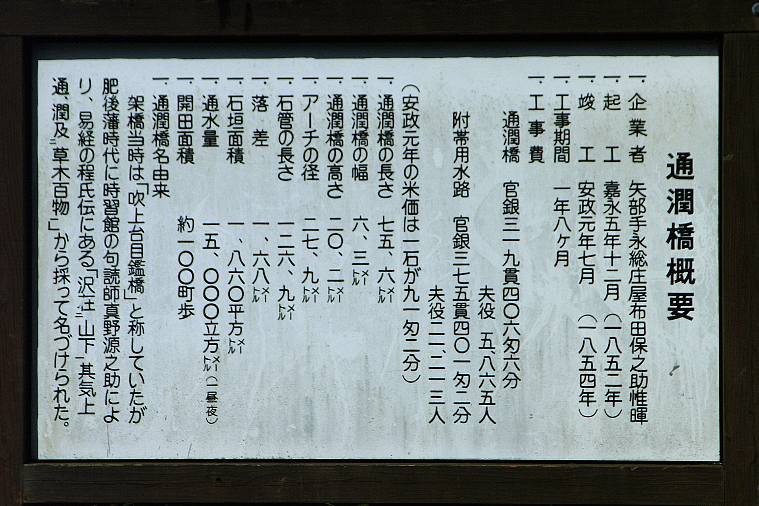 通潤橋概要
一、企業者 矢部手永総庄屋布田保之助惟暉
一、起工 嘉永五年十二月（一八五二年）
一、竣工 安政元年七月（一八五四年）
一、工事期間 一年八ヶ月
一、工事費
通潤橋 官銀三一九貫四〇六匁六分
夫役 五、八六五人
附帯用水路 官銀三七五貫四〇一匁二分
夫役二一、二一三人
（安政元年の米価は一石が九一匁二分）
一、通潤橋の長さ 七五、六メートル
一、通潤橋の幅 六、三メートル
一、通潤橋の高さ 二〇、二メートル
一、アーチの径 二七、九メートル
一、石管の長さ 一二六、九メートル
一、落差 一、六八メートル
一、石垣面積 一、八六〇平方メートル
一、通水量 一五、〇〇〇立方メートル（一昼夜）
一、開田面積 約一〇〇町歩
一、通潤橋名由来
架橋当時は「吹上台目鑑橋」と称していたが
肥後藩時代に時習館の句読師真野源之助によ
り、易経の程氏伝にある「沢在二山下一其気上
通、潤及二草木百物一」から採って名づけられた。